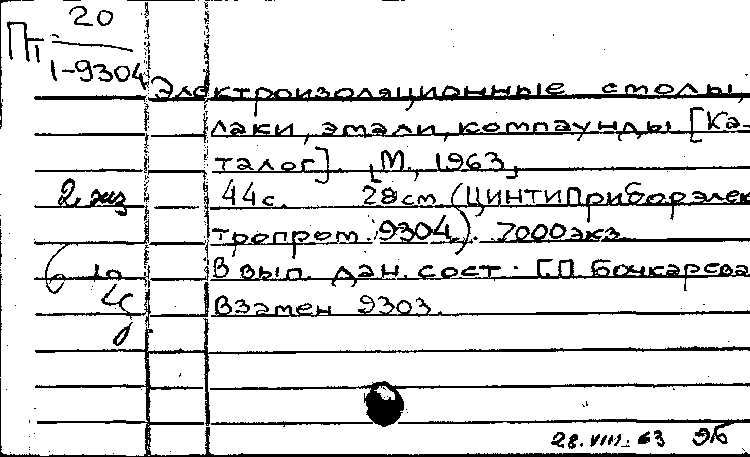 Пт 20
1-9304
Электроизоляционные столы,
лаки, эмали, компаунды [Ка-
талог]. [М., 1963,
2 экз 44 с. 28 см. (ЦИНТИПриборэлек
тропром 9304). 7000 экз
В вып. дан. сост. Г.П. Бочкарева
Взамен 9303.
28.VIII-63 ЭБ